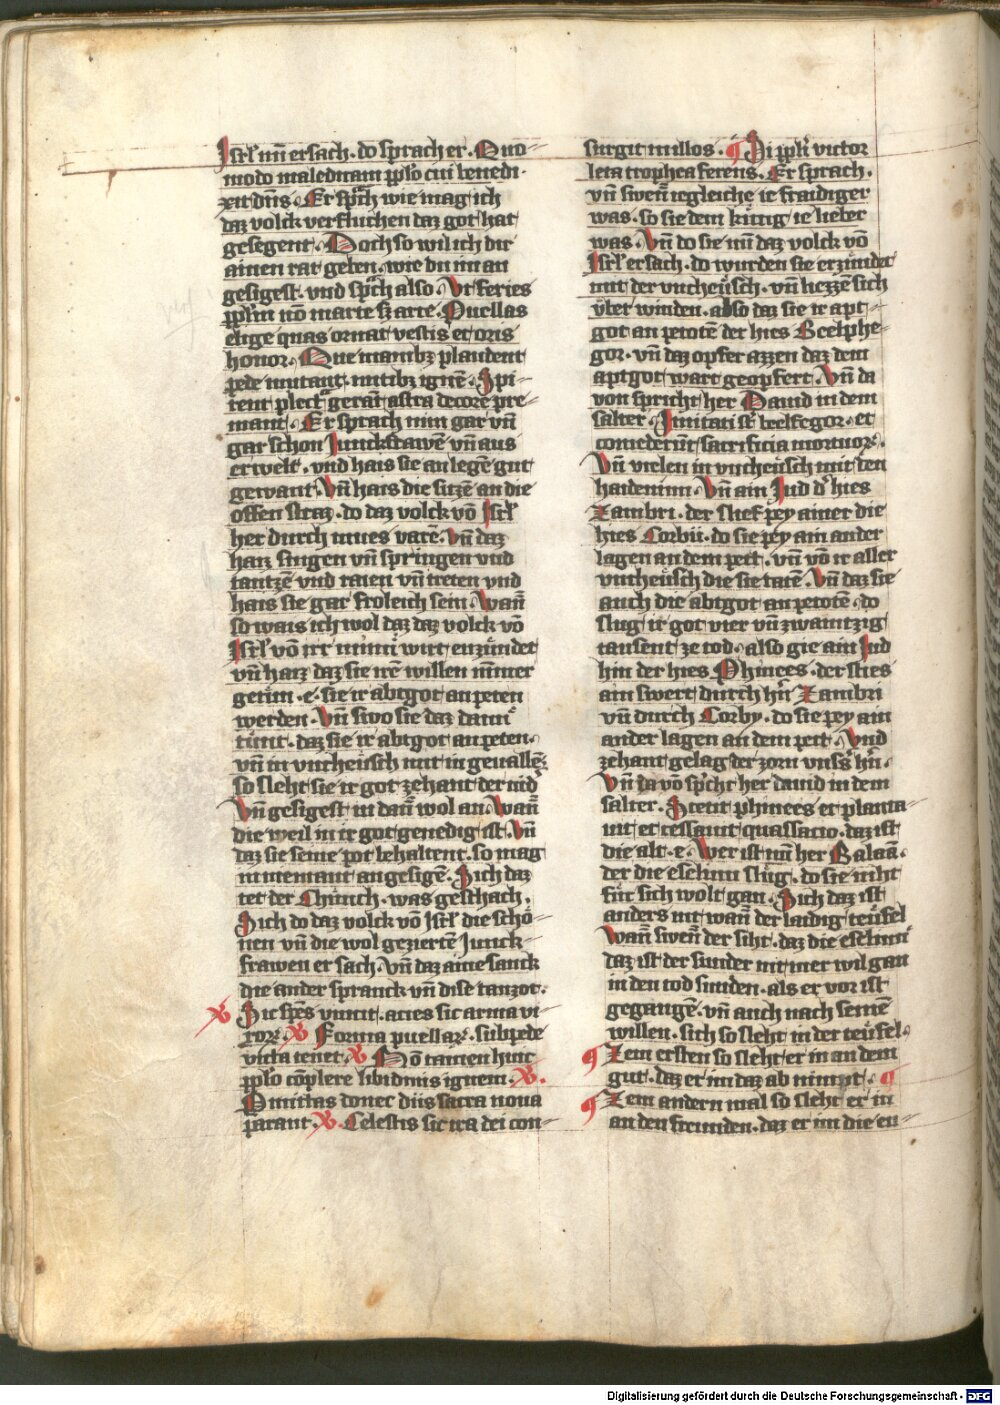 Isrl' nu ersach. do sprach er. Quo-
modo maledicam pplo cui benedi-
xit dns. Er spch wie mag ich
daz volck verfluchen daz got hat
gesegent. Doch so wil ich dir
ainen rat geben. wie du im an
gesigest. vnd spch also. Vt feries
pplm no marte sz arte. Puellas
elige quas ornat vestis et oris
honor. Que manibz plaudent
pede mutant. nutibz igne.
tent plectra gerant astra decore pre-
mant. Er sprach nim gar vn̄
gar schon Junckfrawē vn̄ aus
erwelt. vnd hais sie an legē gut
gewant. Vn̄ hais die sitzē an die
offen straz. do daz volck vō Isrl'
her durch mues varē. vn̄ daz
haiz singen vn̄ springen vnd
tantzē vnd raien vn̄ treten vnd
hais sie gar froleich sein. Wan̄
so wais ich wol daz daz volck vō
Isrl' vō irr minn wirt enzündet
vn̄ haiz daz sie irē willen nimmer
getun. e. sie ir abtgot an peten
werden. Vn̄ swo sie daz dann
tunt. daz sie ir abtgot an peten.
vn̄ in vncheusch mit in geuallē.
so sleht sie ir got zehant der nid
Vn̄ gesigest in dan̄ wol an. Wan̄
die weil in ir got genedig ist. vn̄
daz sie seine pot behaltent. so mag
in niemant an gesigē. Sich daz
tet der Chunch. was geschach.
Sich do daz volck vō Isrl' die schö-
nen vn̄ die wol geziertē Junck-
frawen er sach. vn̄ daz aine sanck
die ander spranck vn̄ dise tanzot.
Sic spes vincit. acies sic arma vi-
rorz. Forma puellarz. sub pede
victa tenet. Nō tamen hinc
pplo cōplere libidinis ignem.
Omittas donec diis sacra noua
parant. Celestis sic ira dei con-
surgit in illos. Si ppli victor
leta trophea ferens. Er sprach.
vn̄ swen iegleiche ir fraudiger
was. so sie dem künig ie lieber
was. Vn̄ do sie nu daz volck vō
Isrl' ersach. do wurden sie erzündet
mit der vncheüsch. vn̄ liezzen sich
vber winden. also daz sie ir apt-
got an petotē der hies Beelphe-
gor. vn̄ daz opfer azzen daz dem
aptgot wart geopfert. Vn̄ da
von spricht her Dauid in dem
salter. Imitati st beelfegor. et
comederūt sacrificia mortuorz.
Vn̄ vielen in vncheüsch mit den
haideninn. Vn̄ ain Jud d' hies
Zambri. der slief pey ainer die
hies Corbii. do sie pey ain ander
lagen an dem pett. vn̄ vō ir aller
vncheüsch die sie tatē. Vn̄ daz sie
auch die abtgot an petotē. do
slug ir got vier vn̄ zwaintzig
tausent ze tod. also gie ain Jud
hin der hies Phinees. der sties
ain swert durch hn̄ Zambri
vn̄ durch Corby. do sie pey ain
ander lagen an dem pett. Vnd
zehant gelag der zorn vnss hn̄.
Vn̄ da vō spcht her dauid in dem
salter. Stetit phinees et placa-
uit et cessauit quassacio. daz ist
die alt. e. Wer ist nu her Balaā.
der die eselinn slüg. do sie niht
für sich wolt gan. Sich daz ist
anders nit wan̄ der laidig teüfel
Wan̄ swen̄ der siht. daz die eselinn
daz ist der sunder nit mer wil gan
in den tod sunden. als er vor ist
gegangē. vn̄ auch nach seinē
willen. sich so sleht in der teüfel.
Zem ersten so sleht er in an dem
gut. daz er im daz ab nimpt.
Zem andern mal so sleht er in
an den freunden. daz er im die en-
Digitalisierung gefördert durch die Deutsche Forschungsgemeinschaft - DFG